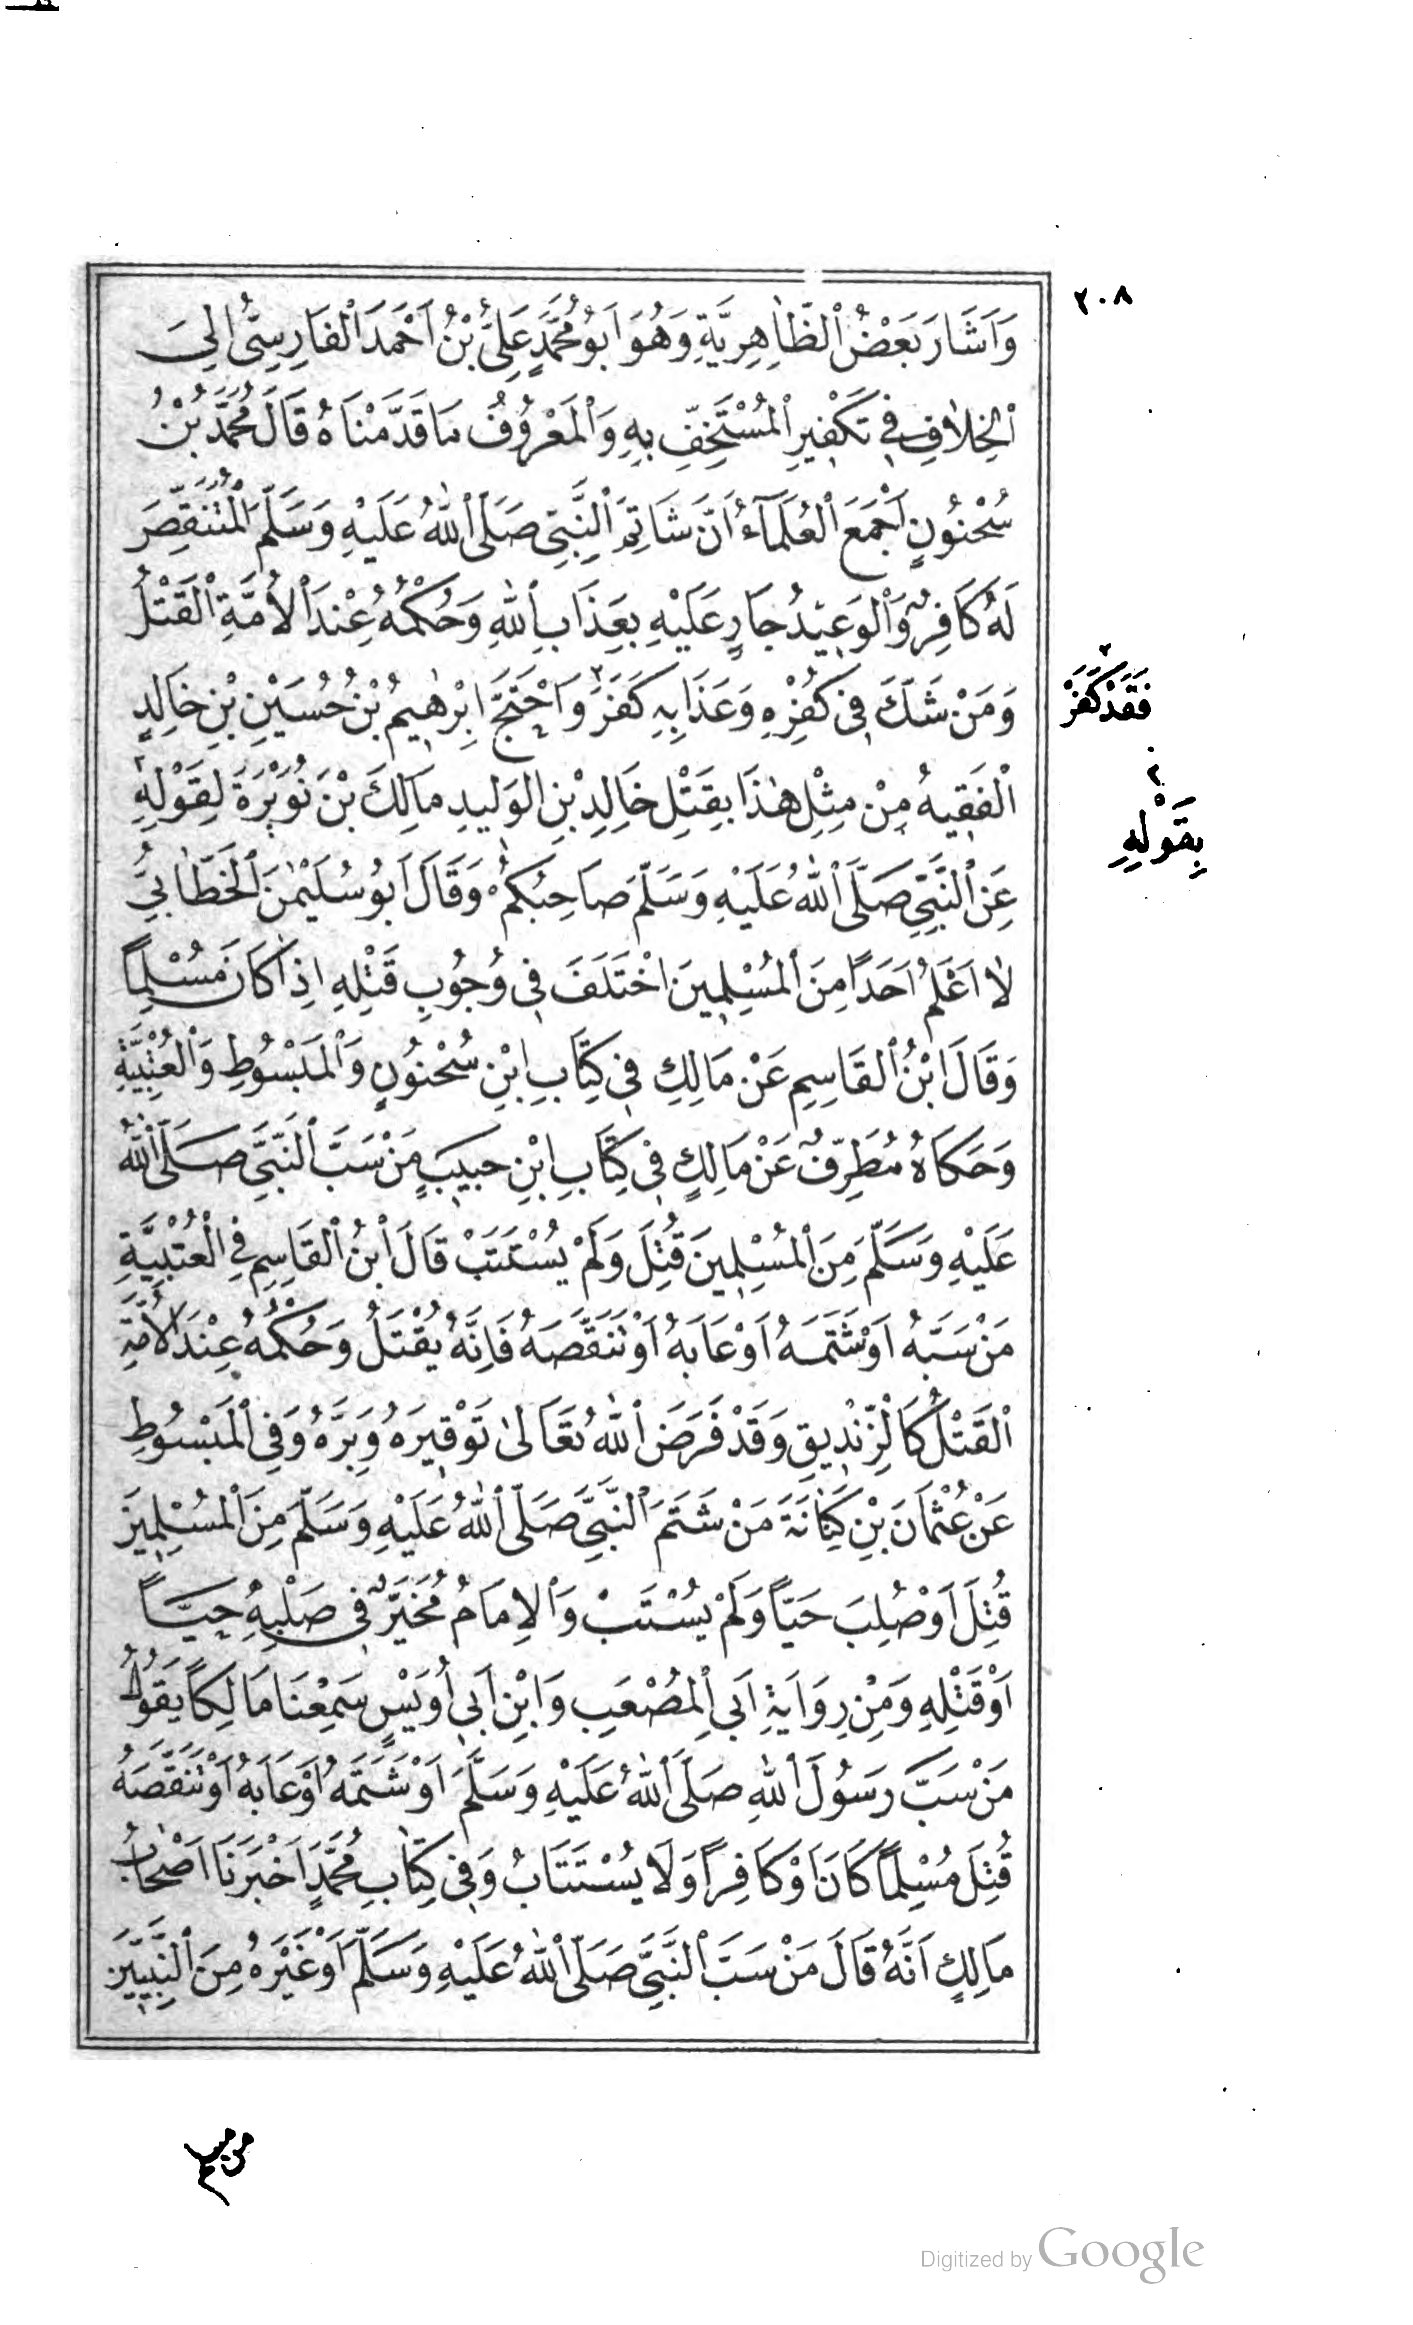 ٢٠٨
وَاَشَارَ بَعْضُ ٱلظَّاهِرِيَّةِ وَهُوَ اَبُو مُحَمَّدٍ عَلِىُّ بْنُ اَحْمَدَ ٱلْفَارِسِىُّ اِلىَ
ٱلْخِلاَفِ فِى تَكْفِيرِ ٱلْمُسْتَخِفِّ بِهِ وَٱلْمَعْرُوفُ مَا قَدَّمْنَاهُ قَالَ مُحَمَّدُ بْنُ
سُحْنُونٍ اَجْمَعَ ٱلْعُلَمَآءُ اَنَّ شَاتِمَ ٱلنَّبِىِّ صَلَّى ٱللهُ عَلَيْهِ وَسَلَّمَ ٱلْمُتَنَقِّصَ
لَهُ كَافِرٌ وَٱلْوَعِيدُ جَارٍ عَلَيْهِ بِعَذَابِ ٱللهِ وَحُكْمُهُ عِنْدَ ٱلْاُمَّةِ ٱلْقَتْلُ
وَمَنْ شَكَّ فِى كُفْرِهِ وَعَذَابِهِ كَفَرَ ٢ وَاَحْتَجَّ اِبْرٰهِيمُ بْنُ حُسَيْنِ بْنِ خَالِدٍ
فَقَدْ كَفَرَ ٢
ٱلْفَقِيهُ مِنْ مِثْلِ هٰذَا بِقَتْلِ خَالِدِ بْنِ الْوَلِيدِ مَالِكَ بْنَ نُوَيْرَةَ لِقَوْلِهِ ٢
بِقَوْلِهِ ٢
عَنِ ٱلنَّبِىِّ صَلَّى ٱللهُ عَلَيْهِ وَسَلَّمَ صَاحِبُكُمْ وَقَالَ اَبُو سُلَيْمٰنَ ٱلْخَطَّابِىُّ
لاَ اَعْلَمُ اَحَدًا مِنَ ٱلْمُسْلِمِينَ اخْتَلَفَ فِى وُجُوبِ قَتْلِهِ اِذَا كَانَ مُسْلِمًا
وَقَالَ ابْنُ ٱلْقَاسِمِ عَنْ مَالِكِ فِى كِتَابِ ابْنِ سُحْنُونٍ وَٱلْمَبْسُوطِ وَٱلْعُتْبِيَّةِ
وَحَكَاهُ مُطَرِّفٌ عَنْ مَالِكٍ فِى كِتَابِ ابْنِ حَبِيبٍ مَنْ سَبَّ ٱلنَّبِىَّ صَلَّى ٱللهُ
عَلَيْهِ وَسَلَّمَ مِنَ ٱلْمُسْلِمِينَ قُتِلَ وَلَمْ يُسْتَتَبْ قَالَ ٱبْنُ ٱلْقَاسِمِ فِى ٱلْعُتْبِيَّةِ
مَنْ سَبَّهُ اَوْ شَتَمَهُ اَوْ عَابَهُ اَوْ تَنَقَّصَهُ فَاِنَّهُ يُقْتَلُ وَحُكْمُهُ عِنْدَ ٱلْاُمَّةِ
ٱلْقَتْلُ كَالزِّنْدِيقِ وَقَدْ فَرَضَ ٱللهُ تَعَالىٰ تَوْقِيرَهُ وَبِرَّهُ وَفِى ٱلْمَبْسُوطِ
عَنْ عُثْمَانَ بْنِ كِنَانَةَ مَنْ شَتَمَ ٱلنَّبِىَّ صَلَّى ٱللهُ عَلَيْهِ وَسَلَّمَ مِنَ ٱلْمُسْلِمِينَ
قُتِلَ اَوْ صُلِبَ حَيًّا وَلَمْ يُسْتَتَبْ وَٱلْاِمَامُ مُخَيَّرٌ فِى صَلْبِهِ حَيًّا
اَوْ قَتْلِهِ وَمِنْ رِوَايَةِ اَبِى ٱلْمُصْعَبِ وَابْنِ اَبِى اُوَيْسٍ سَمِعْنَا مَالِكًا يَقُولُ
مَنْ سَبَّ رَسُولَ ٱللهِ صَلَّى ٱللهُ عَلَيْهِ وَسَلَّمَ اَوْ شَتَمَهُ اَوْ عَابَهُ اَوْ تَنَقَّصَهُ
قُتِلَ مُسْلِمًا كَانَ اَوْ كَافِرًا وَلَا يُسْتَتَابُ وَفِى كِتَابِ مُحَمَّدٍ اَخْبَرَنَا اَصْحَابُ
مَالِكٍ اَنَّهُ قَالَ مَنْ سَبَّ ٱلنَّبِىَّ صَلَّى ٱللهُ عَلَيْهِ وَسَلَّمَ اَوْ غَيْرَهُ مِنَ ٱلنَّبِيِّينَ
Digitized by Google